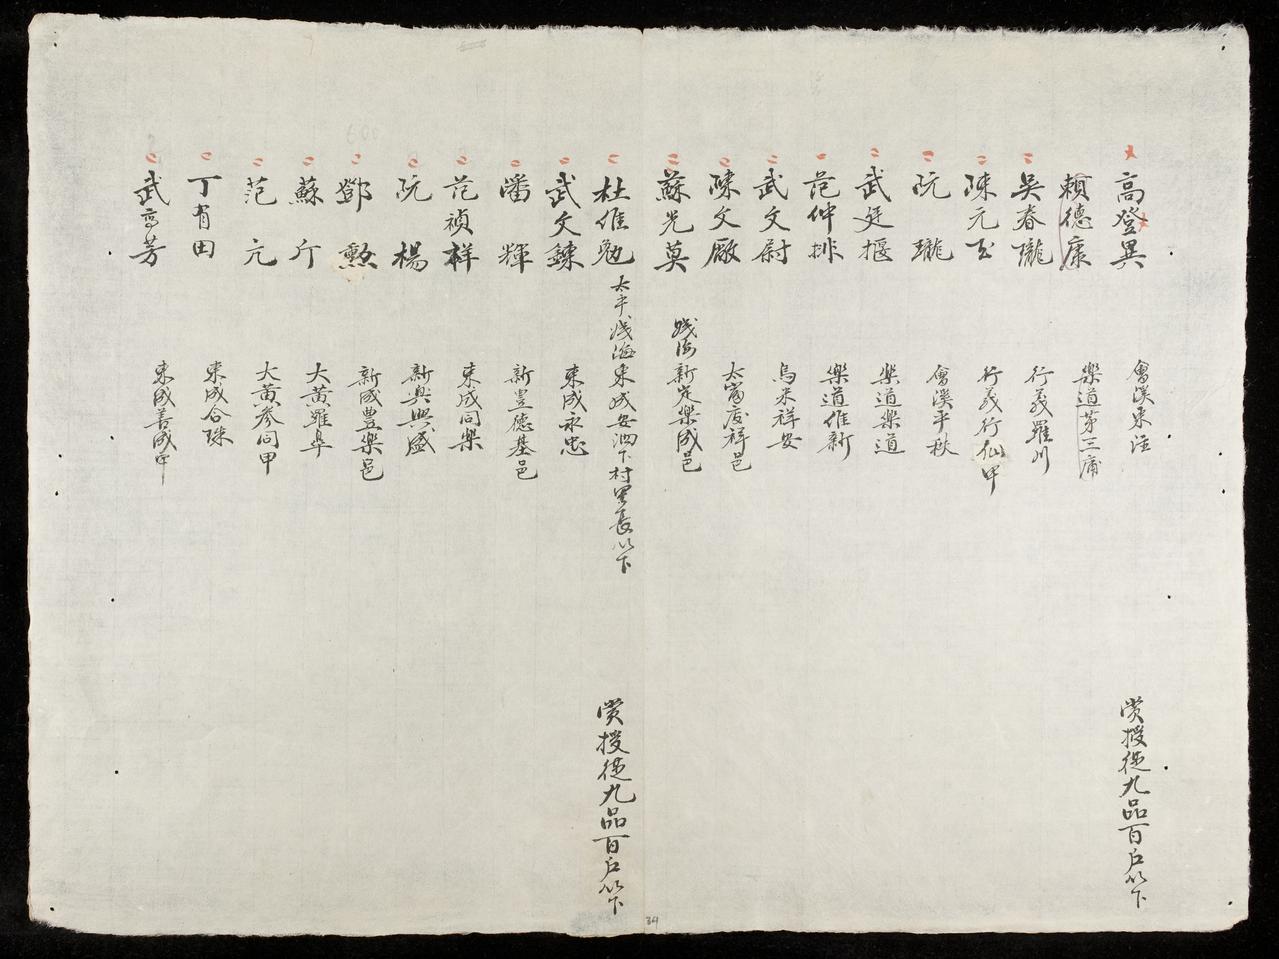 高登異 會溪東注 賞授從九品百戶以下
賴德康 樂道第三甫
吳春隴 行義羅川
陳元 行義行仙甲
阮瓏 會溪平秋
武廷揠 樂道樂道
范仲排 樂道惟新
武文尉 烏米祥安
陳文廠 慶祥邑
蘇光莫 踐海新定樂成邑
杜惟勉 太平淺海東成安泗下村里長以下 賞授從九品百戶以下
武文鍊 東成永忠
潘輝 新豊德基邑
范禎祥 東成同樂
阮楊 新興興盛
鄧勲 新成豊樂邑
蘇斤 大黃羅阜
范亢 大黃參同甲
丁有田 東成合珠
武亭芳 東成善成甲
34